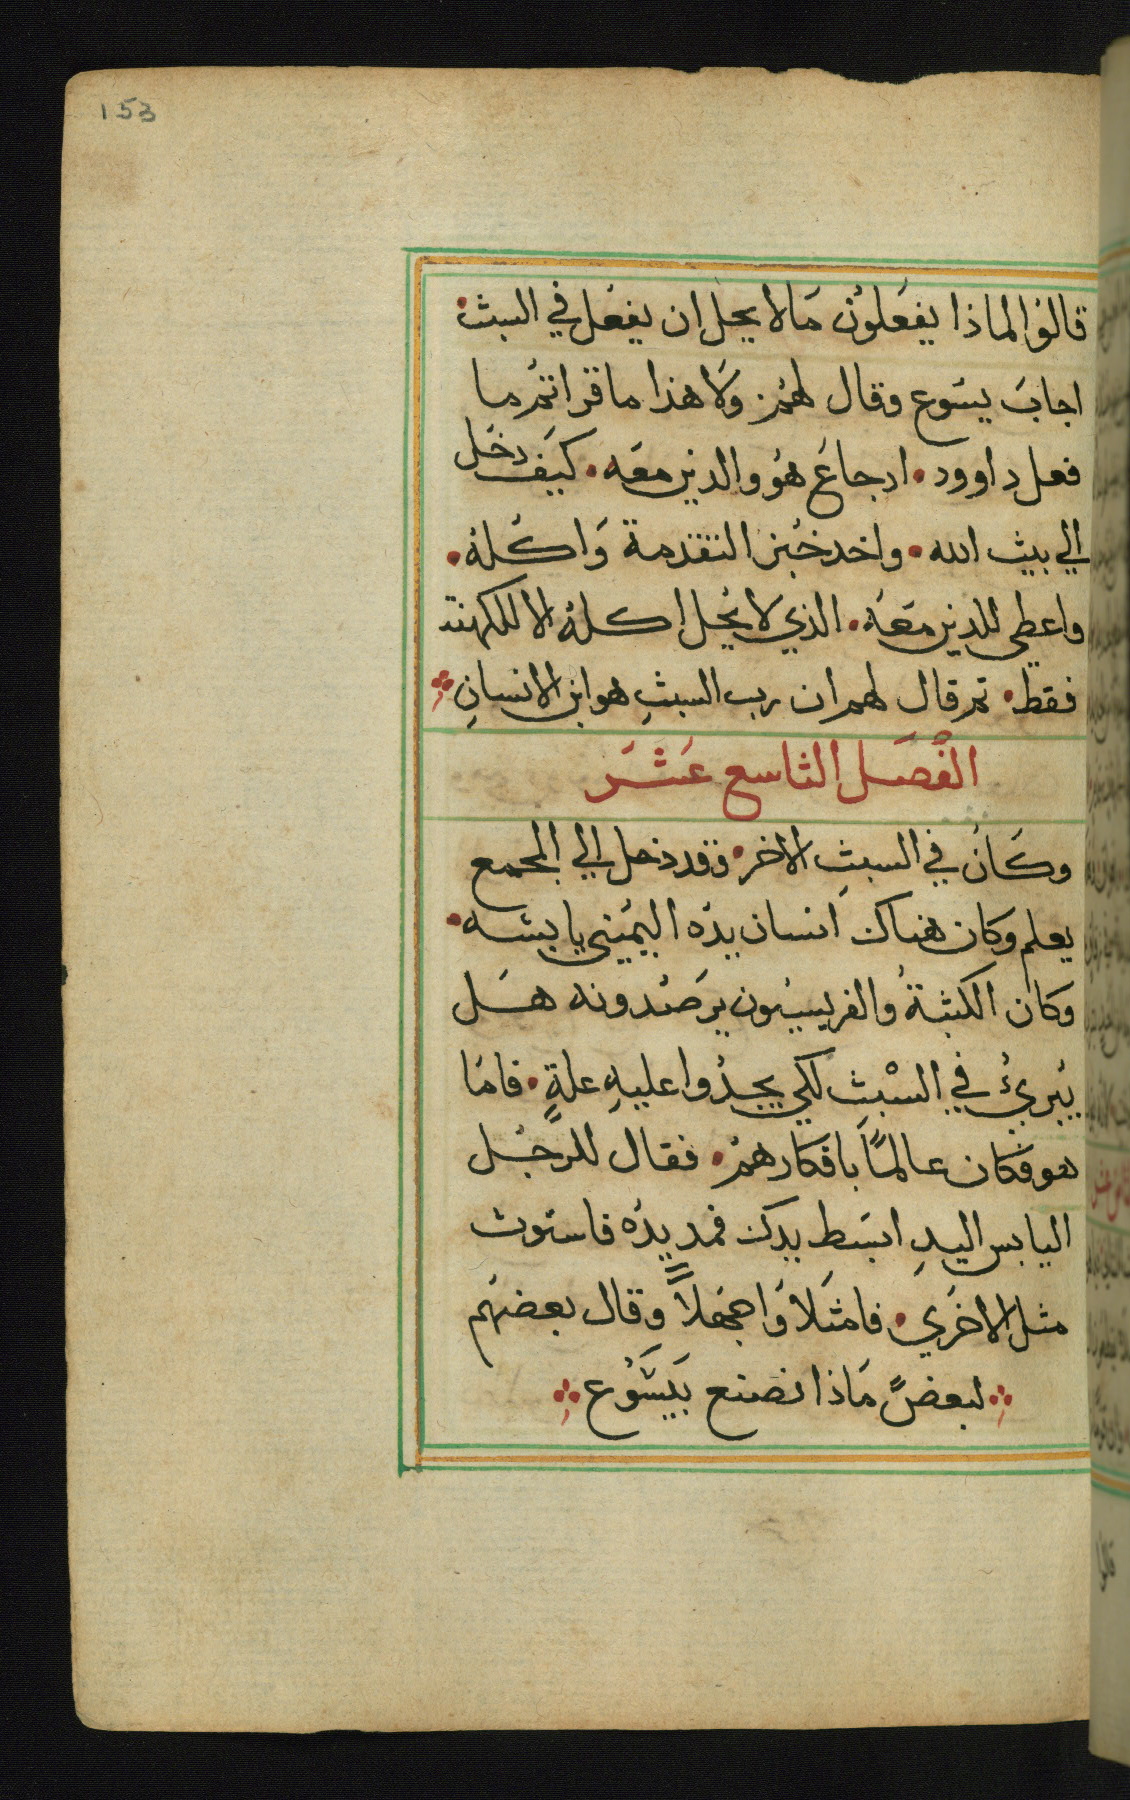 153
قالوا لماذا يفعلون ما لا يحل ان يفعل في السبث
اجاب يسوع وقال لهم ولا هذا ما قراتم ما
فعل داوود اد جاع هو والدين معه كيف دخل
الي بيث الله واخد خبز التقدمة واكله
واعطي للدين معه الذي لا يحل اكله الا للكهنة
فقط تم قال لهم ان رب السبث هو ابن الانسان
الفصل التاسع عشر
وكان في السبث الاخر وقد دخل الي المجمع
يعلم وكان هناك انسان يده اليمني يابسه
وكان الكتبة والفريسيون يرصدونه هل
يبريُ في السبث لكي يجدوا عليه علة فاما
هو فكان عالمًا بافكارهم فقال للرجل
اليابس اليد ابسط يدك فمد يده فاستوث
مثل الاخري فامتلاوا جهلاً وقال بعضهم
لبعض ماذا نصنع بيسوع